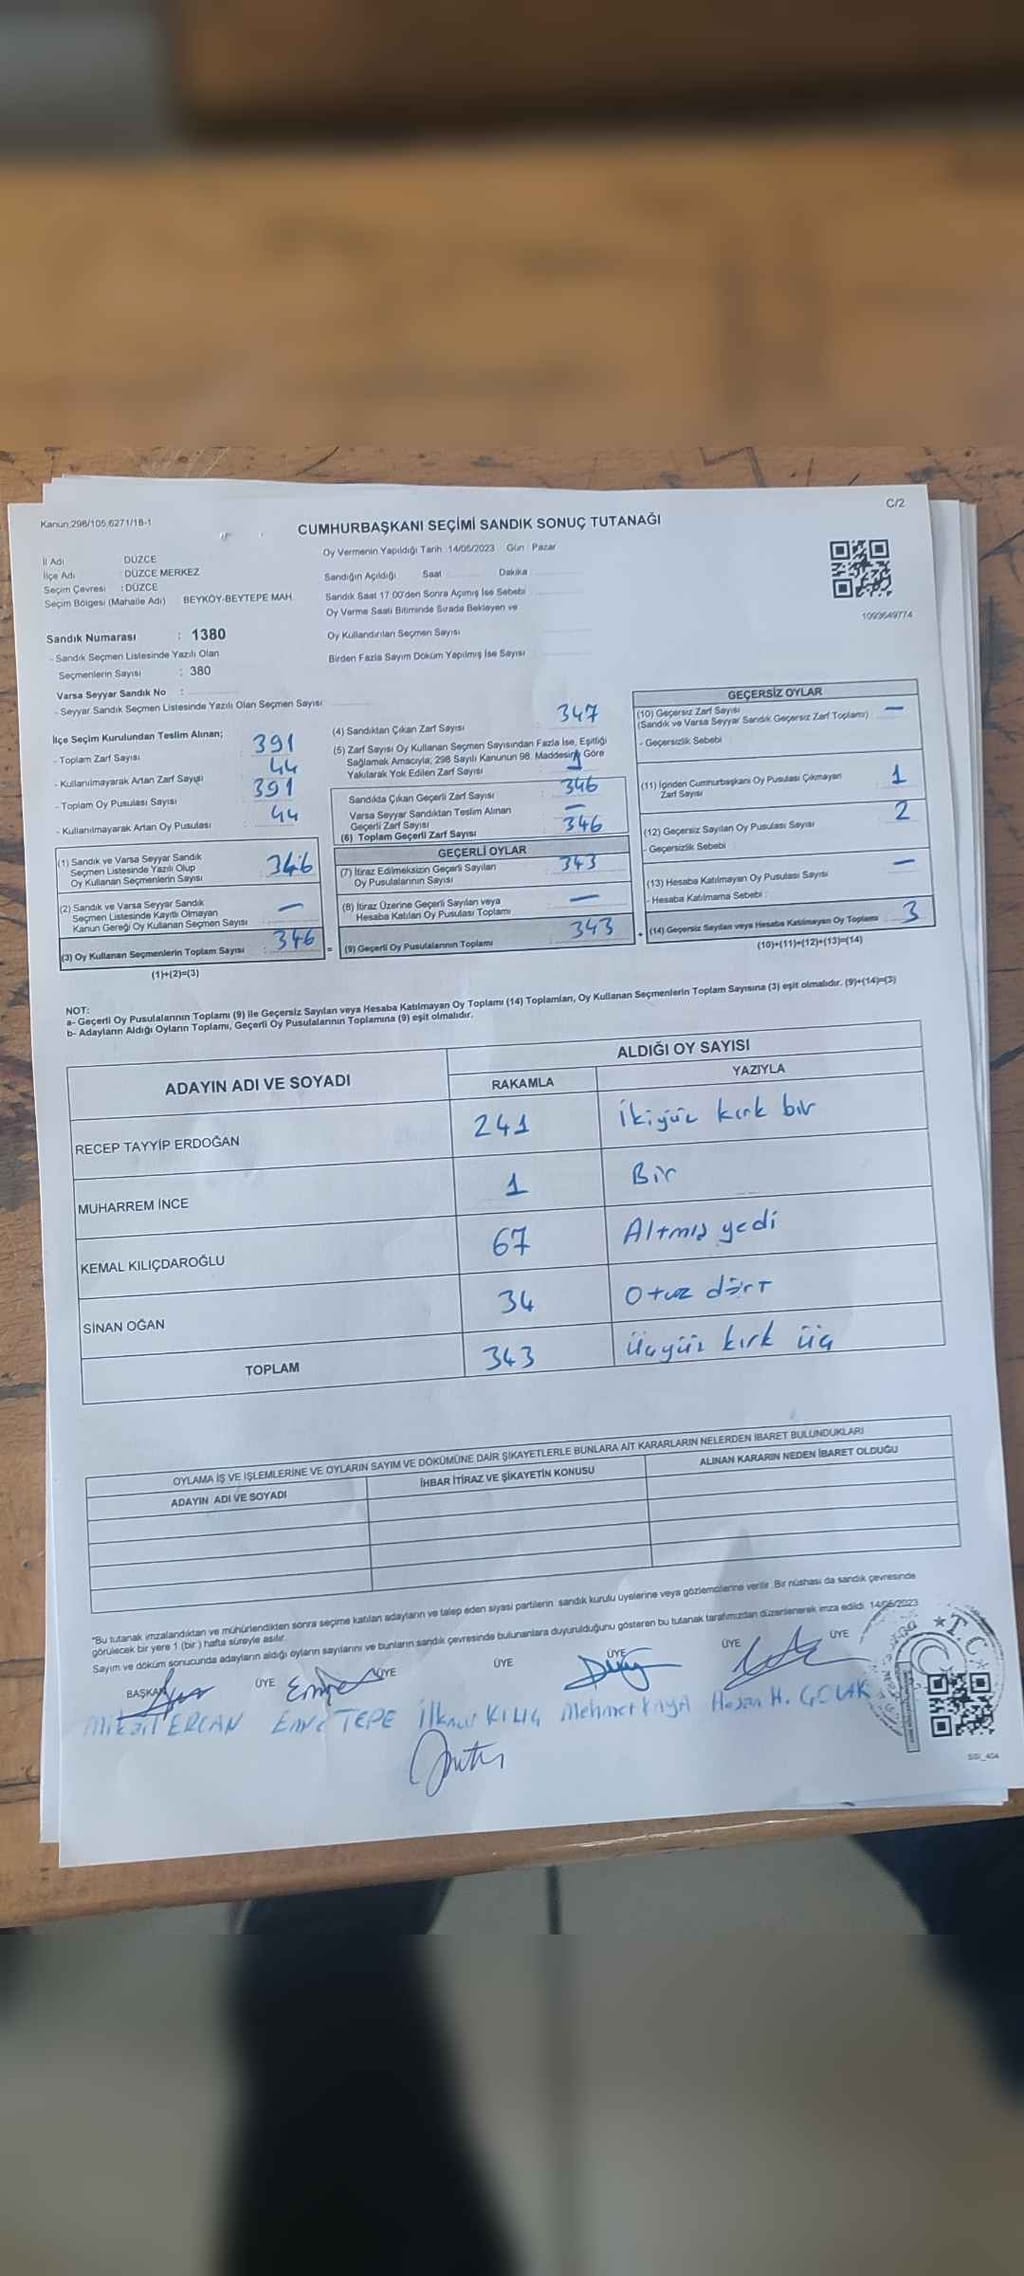 Kanun:298/105,6271/18-1
C/2
CUMHURBAŞKANI SEÇİMİ SANDIK SONUÇ TUTANAĞI
İl Adı DÜZCE
İlçe Adı : DÜZCE MERKEZ
Seçim Çevresi : DÜZCE
Seçim Bölgesi (Mahalle Adı) BEYKÖY-BEYTEPE MAH.
Sandık Numarası : 1380
- Sandık Seçmen Listesinde Yazılı Olan
Seçmenlerin Sayısı : 380
Varsa Seyyar Sandık No :
- Seyyar Sandık Seçmen Listesinde Yazılı Olan Seçmen Sayısı
Oy Vermenin Yapıldığı Tarih :14/05/2023 Gün : Pazar
Sandığın Açıldığı Saat Dakika
Sandık Saat 17.00'den Sonra Açılmış İse Sebebi
Oy Verme Saati Bitiminde Sırada Bekleyen ve
Oy Kullandırılan Seçmen Sayısı
Birden Fazla Sayım Döküm Yapılmış İse Sayısı
1093649774
İlçe Seçim Kurulundan Teslim Alınan;
- Toplam Zarf Sayısı : 391
- Kullanılmayarak Artan Zarf Sayısı : 44
- Toplam Oy Pusulası Sayısı : 391
- Kullanılmayarak Artan Oy Pusulası : 44
(1) Sandık ve Varsa Seyyar Sandık
Seçmen Listesinde Yazılı Olup
Oy Kullanan Seçmenlerin Sayısı : 346
(2) Sandık ve Varsa Seyyar Sandık
Seçmen Listesinde Kayıtlı Olmayan
Kanun Gereği Oy Kullanan Seçmen Sayısı : —
(3) Oy Kullanan Seçmenlerin Toplam Sayısı : 346 =
(1)+(2)=(3)
(4) Sandıktan Çıkan Zarf Sayısı : 347
(5) Zarf Sayısı Oy Kullanan Seçmen Sayısından Fazla İse, Eşitliği
Sağlamak Amacıyla; 298 Sayılı Kanunun 98. Maddesine Göre
Yakılarak Yok Edilen Zarf Sayısı : 1
Sandıkta Çıkan Geçerli Zarf Sayısı : 346
Varsa Seyyar Sandıktan Teslim Alınan
Geçerli Zarf Sayısı : —
(6) Toplam Geçerli Zarf Sayısı : 346
GEÇERLİ OYLAR
(7) İtiraz Edilmeksizin Geçerli Sayılan
Oy Pusulalarının Sayısı : 343
(8) İtiraz Üzerine Geçerli Sayılan veya
Hesaba Katılan Oy Pusulası Toplamı : —
(9) Geçerli Oy Pusulalarının Toplamı : 343 +
GEÇERSİZ OYLAR
(10) Geçersiz Zarf Sayısı
(Sandık ve Varsa Seyyar Sandık Geçersiz Zarf Toplamı) —
- Geçersizlik Sebebi :
(11) İçinden Cumhurbaşkanı Oy Pusulası Çıkmayan
Zarf Sayısı 1
(12) Geçersiz Sayılan Oy Pusulası Sayısı 2
- Geçersizlik Sebebi :
(13) Hesaba Katılmayan Oy Pusulası Sayısı —
- Hesaba Katılmama Sebebi :
(14) Geçersiz Sayılan veya Hesaba Katılmayan Oy Toplamı 3
(10)+(11)+(12)+(13)=(14)
NOT:
a- Geçerli Oy Pusulalarının Toplamı (9) ile Geçersiz Sayılan veya Hesaba Katılmayan Oy Toplamı (14) Toplamları, Oy Kullanan Seçmenlerin Toplam Sayısına (3) eşit olmalıdır. (9)+(14)=(3)
b- Adayların Aldığı Oyların Toplamı, Geçerli Oy Pusulalarının Toplamına (9) eşit olmalıdır.
ADAYIN ADI VE SOYADI
ALDIĞI OY SAYISI
RAKAMLA YAZIYLA
RECEP TAYYİP ERDOĞAN 241 İkiyüz kırk bir
MUHARREM İNCE 1 Bir
KEMAL KILIÇDAROĞLU 67 Altmış yedi
SİNAN OĞAN 34 Otuz dört
TOPLAM 343 Üçyüz kırk üç
OYLAMA İŞ VE İŞLEMLERİNE VE OYLARIN SAYIM VE DÖKÜMÜNE DAİR ŞİKAYETLERLE BUNLARA AİT KARARLARIN NELERDEN İBARET BULUNDUKLARI
ADAYIN ADI VE SOYADI İHBAR İTİRAZ VE ŞİKAYETİN KONUSU ALINAN KARARIN NEDEN İBARET OLDUĞU
*Bu tutanak imzalandıktan ve mühürlendikten sonra seçime katılan adayların ve talep eden siyasi partilerin sandık kurulu üyelerine veya gözlemcilerine verilir. Bir nüshası da sandık çevresinde
görülecek bir yere 1 (bir) hafta süreyle asılır.
Sayım ve döküm sonucunda adayların aldığı oyların sayılarını ve bunların sandık çevresinde bulunanlara duyurulduğunu gösteren bu tutanak tarafımızdan düzenlenerek imza edildi. 14/05/2023
BAŞKAN ÜYE ÜYE ÜYE ÜYE ÜYE ÜYE
Mikail ERCAN Emre TEPE İlknur KILIÇ Mehmet KAYA Hasan H. GOLAK
T.C
SSI_404